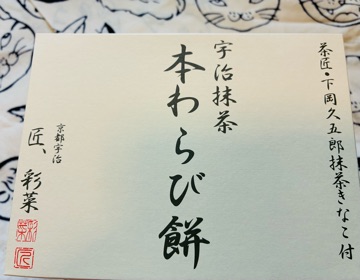 茶匠・下岡久五郎抹茶きなこ付
宇治抹茶
本わらび餅
京都宇治
匠、彩菜